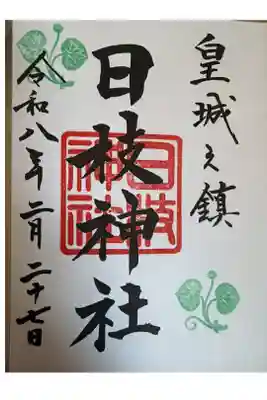 皇城之鎮
日枝神社
日枝神社
令和八年二月二十七日